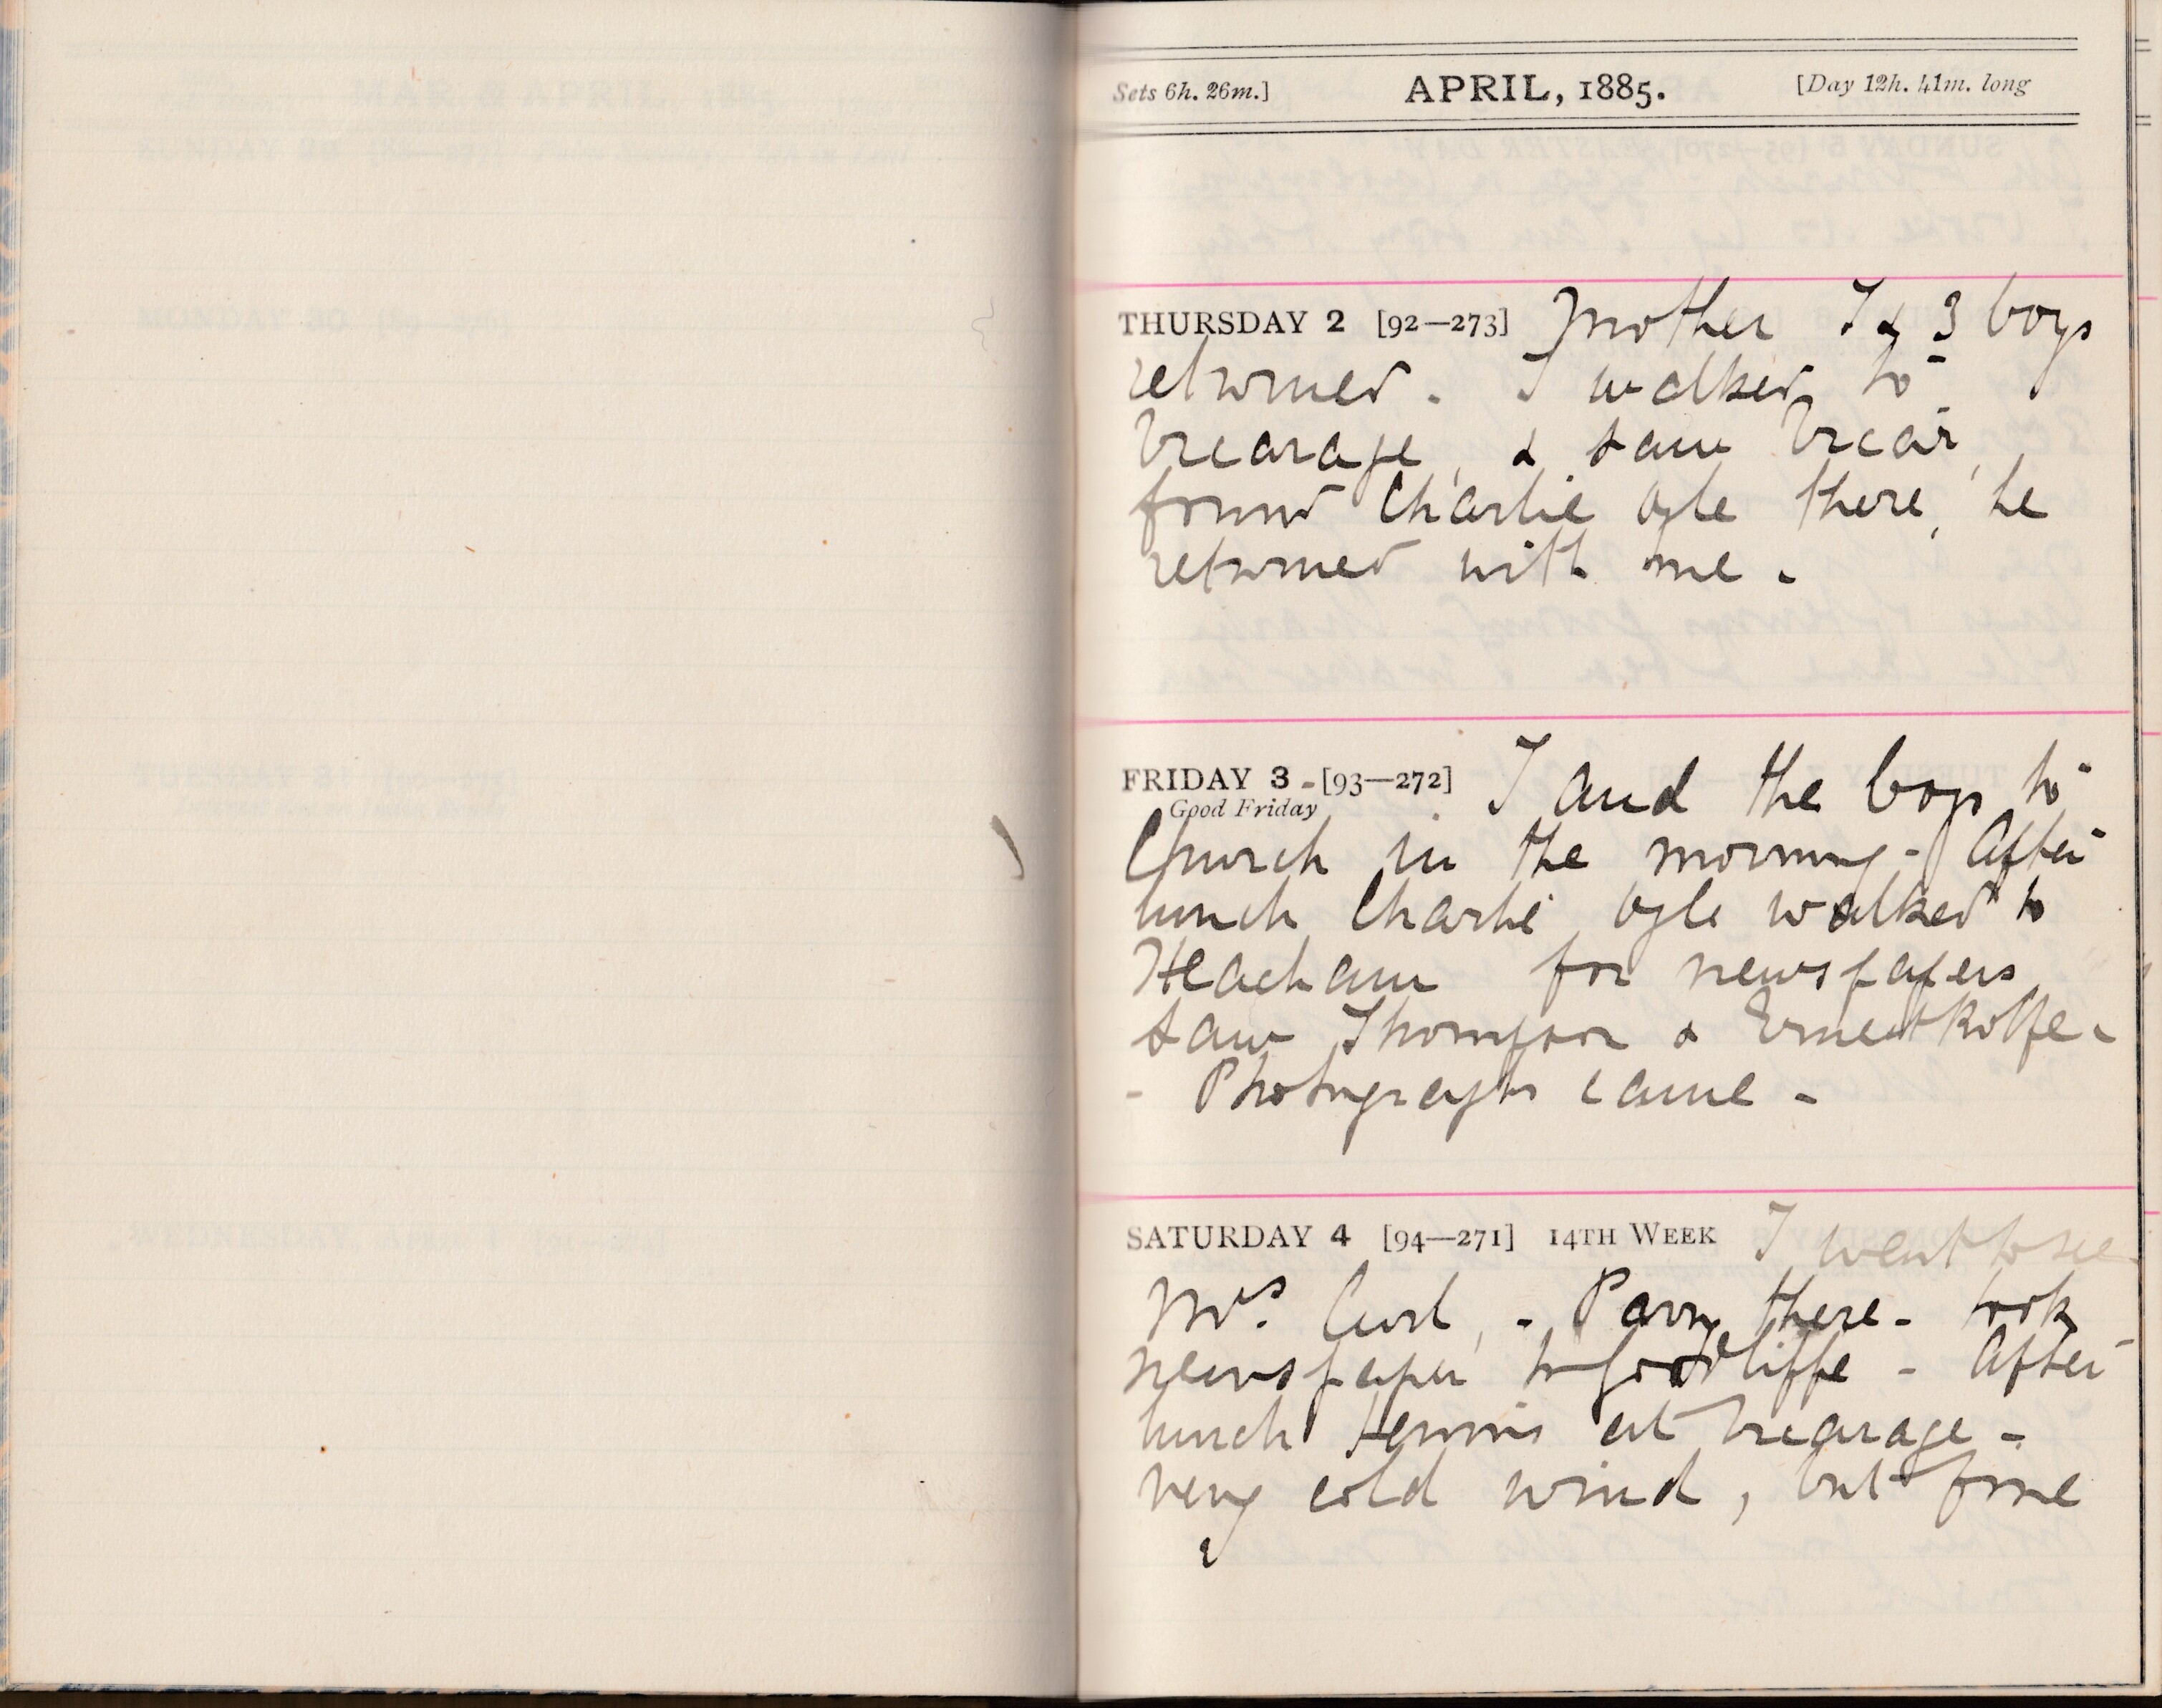 Sets 6h. 26m.] APRIL, 1885. [Day 12h. 41m. long
THURSDAY 2 [92—273] Mother I & 3 boys
returned. I walked to
Vicarage, & saw Vicar,
found Charlie Ogle there, he
returned with me.
FRIDAY 3 - [93—272] I and the boys to
Good Friday
Church in the morning - After
lunch Charlie Ogle walked to
Heacham for newspapers
saw Thompson & Ernest Rolfe -
- Photographs came -
SATURDAY 4 [94—271] 14TH WEEK I went to see
Mrs. Curl, - Parry there - took
newspaper to Goodliffe - After
lunch tennis at Vicarage -
very cold wind, but fine